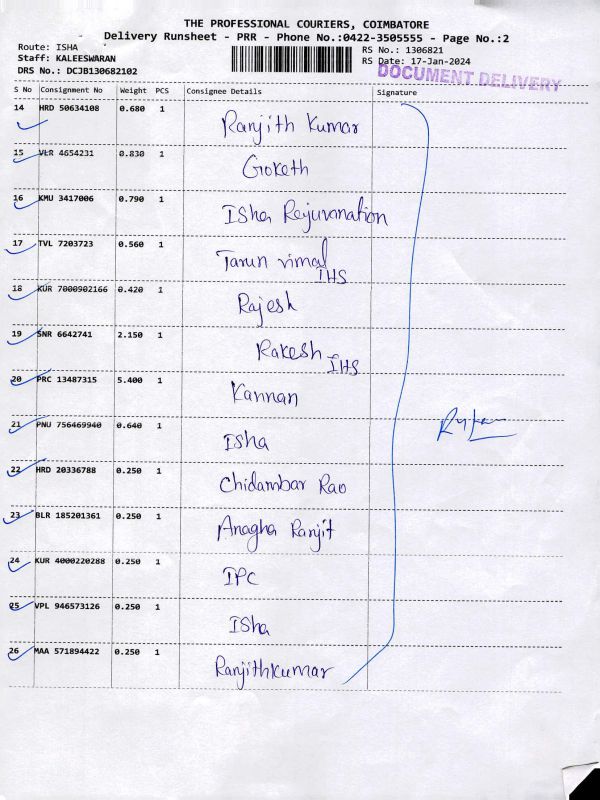 THE PROFESSIONAL COURIERS, COIMBATORE
Delivery Runsheet - PRR - Phone No.:0422-3505555 - Page No.:2
Route: ISHA
Staff: KALEESWARAN
DRS No.: DCJB130682102
RS No.: 1306821
RS Date: 17-Jan-2024
DOCUMENT DELIVERY
S No Consignment No Weight PCS Consignee Details Signature
14 HRD 50634108 0.680 1 Ranjith Kumar
15 VLR 4654231 0.830 1 Gokcth
16 KMU 3417006 0.790 1 Isha Rejuvanation
17 TVL 7203723 0.560 1 Tarun vimal
IHS
18 KUR 7000902166 0.420 1 Rajesh
19 SNR 6642741 2.150 1 Rakesh IHS
20 PRC 13487315 5.400 1 Kannan
21 PNU 756469940 0.640 1 Isha
22 HRD 20336788 0.250 1 Chidambar Rao
23 BLR 185201361 0.250 1 Anagha Ranjit
24 KUR 4000220288 0.250 1 IPC
25 VPL 946573126 0.250 1 Isha
26 MAA 571894422 0.250 1 Ranjithkumar